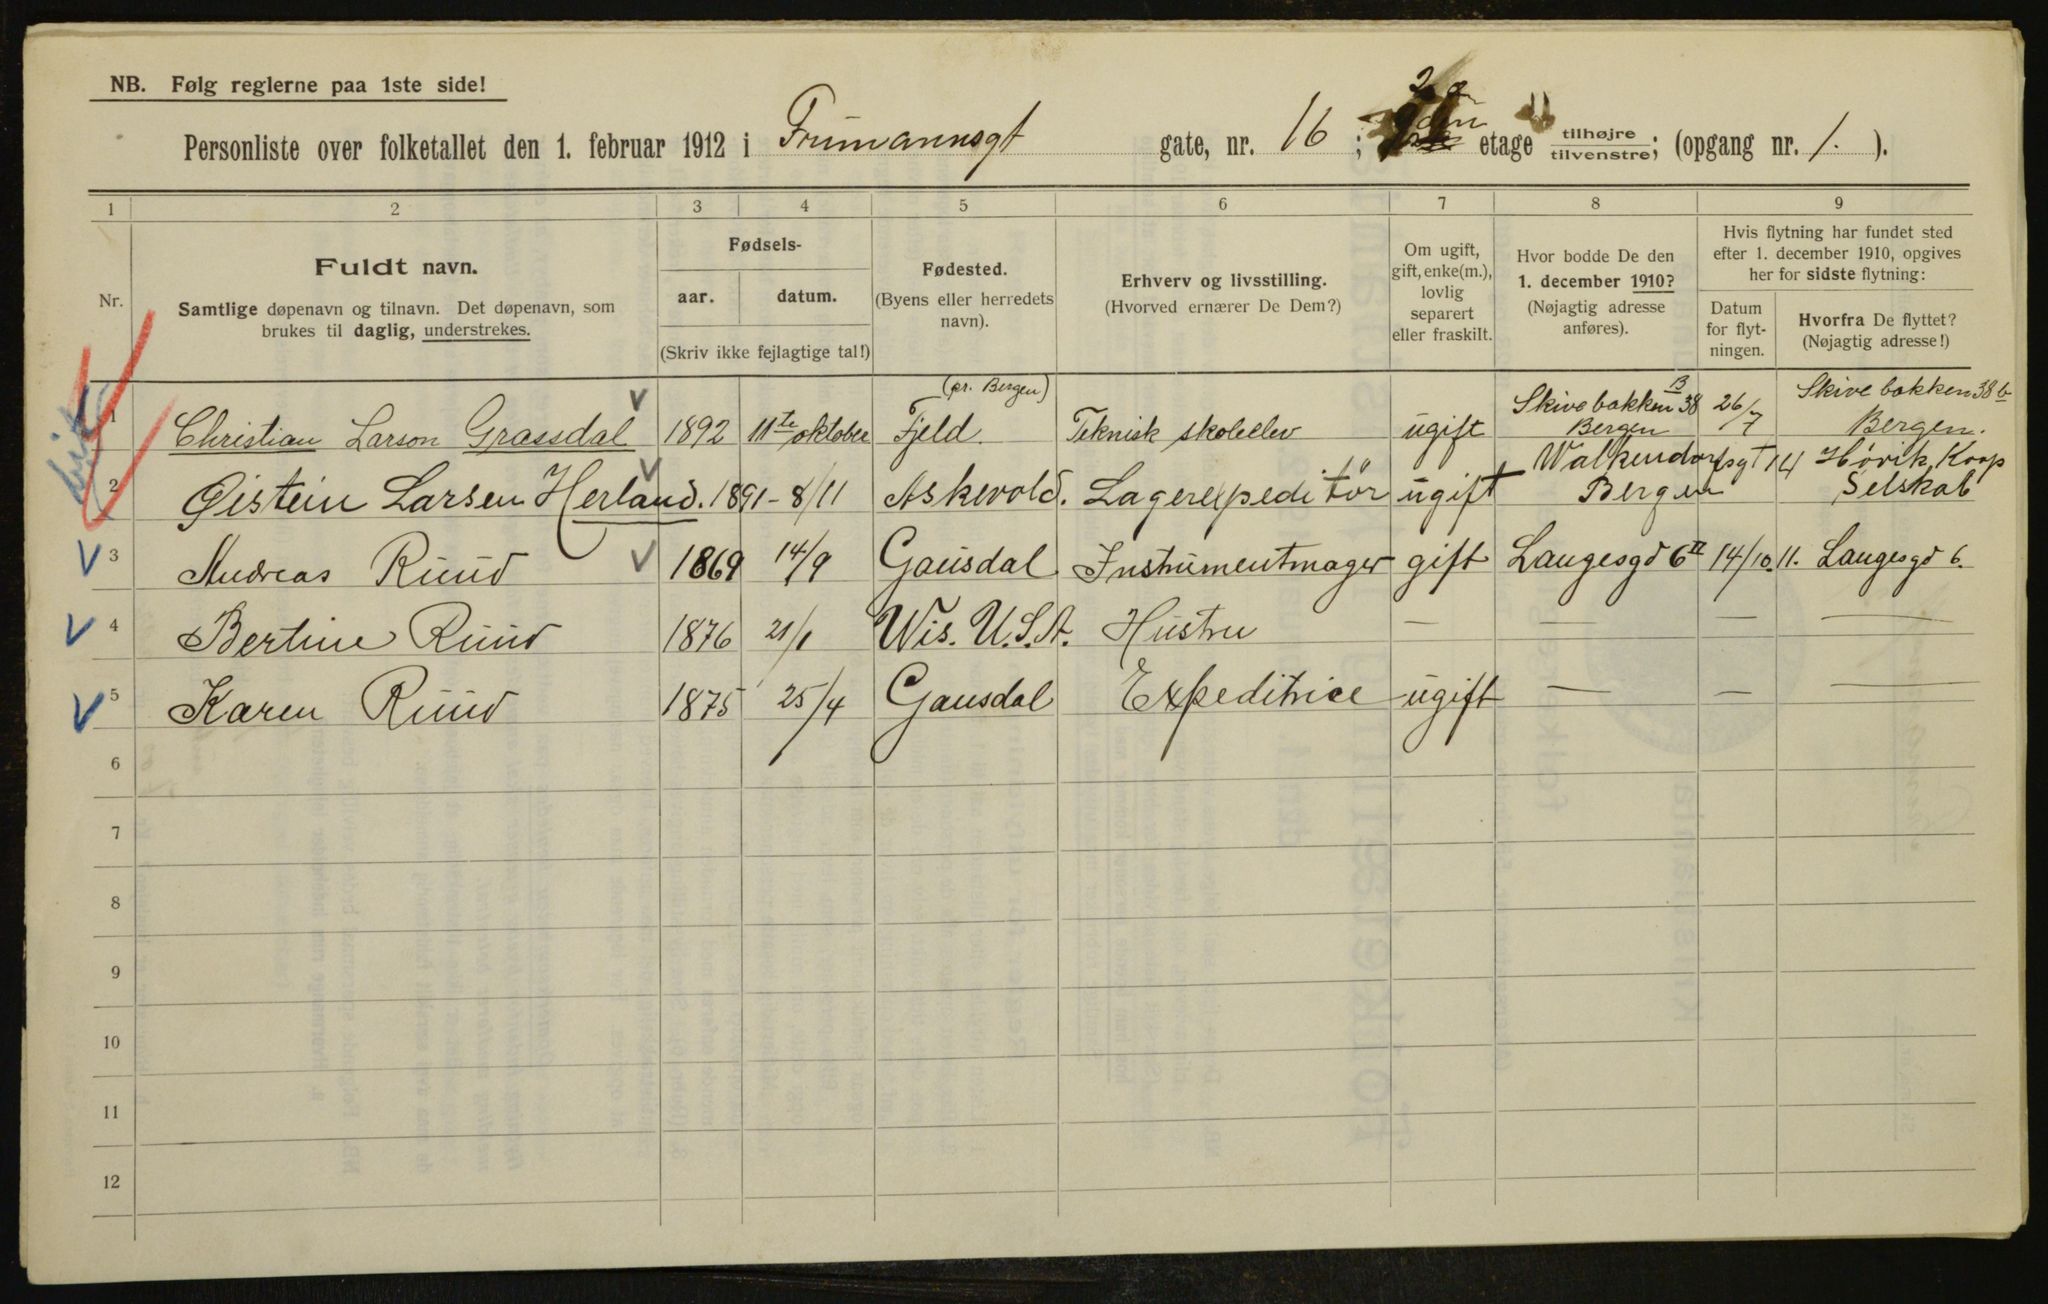 NB. Følg reglerne paa 1ste side!
Personliste over folketallet den 1. februar 1912 i Frimannsgt gate, nr. 16 ; etage tilhøjre tilvenstre; (opgang nr. 1. ).
1 2 3 4 5 6 7 8 9
Nr.
Fuldt navn.
Samtlige døpenavn og tilnavn. Det døpenavn, som
brukes til daglig, understrekes.
Fødsels-
aar. datum.
(Skriv ikke fejlagtige tal!)
Fødested.
(Byens eller herredets
navn).
Erhverv og livsstilling.
(Hvorved ernærer De Dem?)
Om ugift,
gift, enke(m.),
lovlig
separert
eller fraskilt.
Hvor bodde De den
1. december 1910?
(Nøjagtig adresse
anføres).
Hvis flytning har fundet sted
efter 1. december 1910, opgives
her for sidste flytning:
Datum
for flyt-
ningen.
Hvorfra De flyttet?
(Nøjagtig adresse!)
1 Christian Larson Grassdal 1892 11te oktober Fjeld (pr. Bergen) Teknisk skoleelev ugift Skivebakken 38 B Bergen 26/7 Skivebakken 38 b Bergen.
2 Øistein Larsen Herland. 1891 - 8/11 Askevold. Lagerexpeditör ugift Walkendorfsgt 14 Bergen Høvik Koop Selskab
3 Andreas Ruud 1869 14/9 Gausdal Instrumentmager gift Langesgd 6 II 14/10.11. Langesgd 6.
4 Bertine Ruud 1876 21/1 Wis. U.S.A. Hustru — — — —
5 Karen Ruud 1875 25/4 Gausdal Expeditrice ugift — — —
6
7
8
9
10
11
12